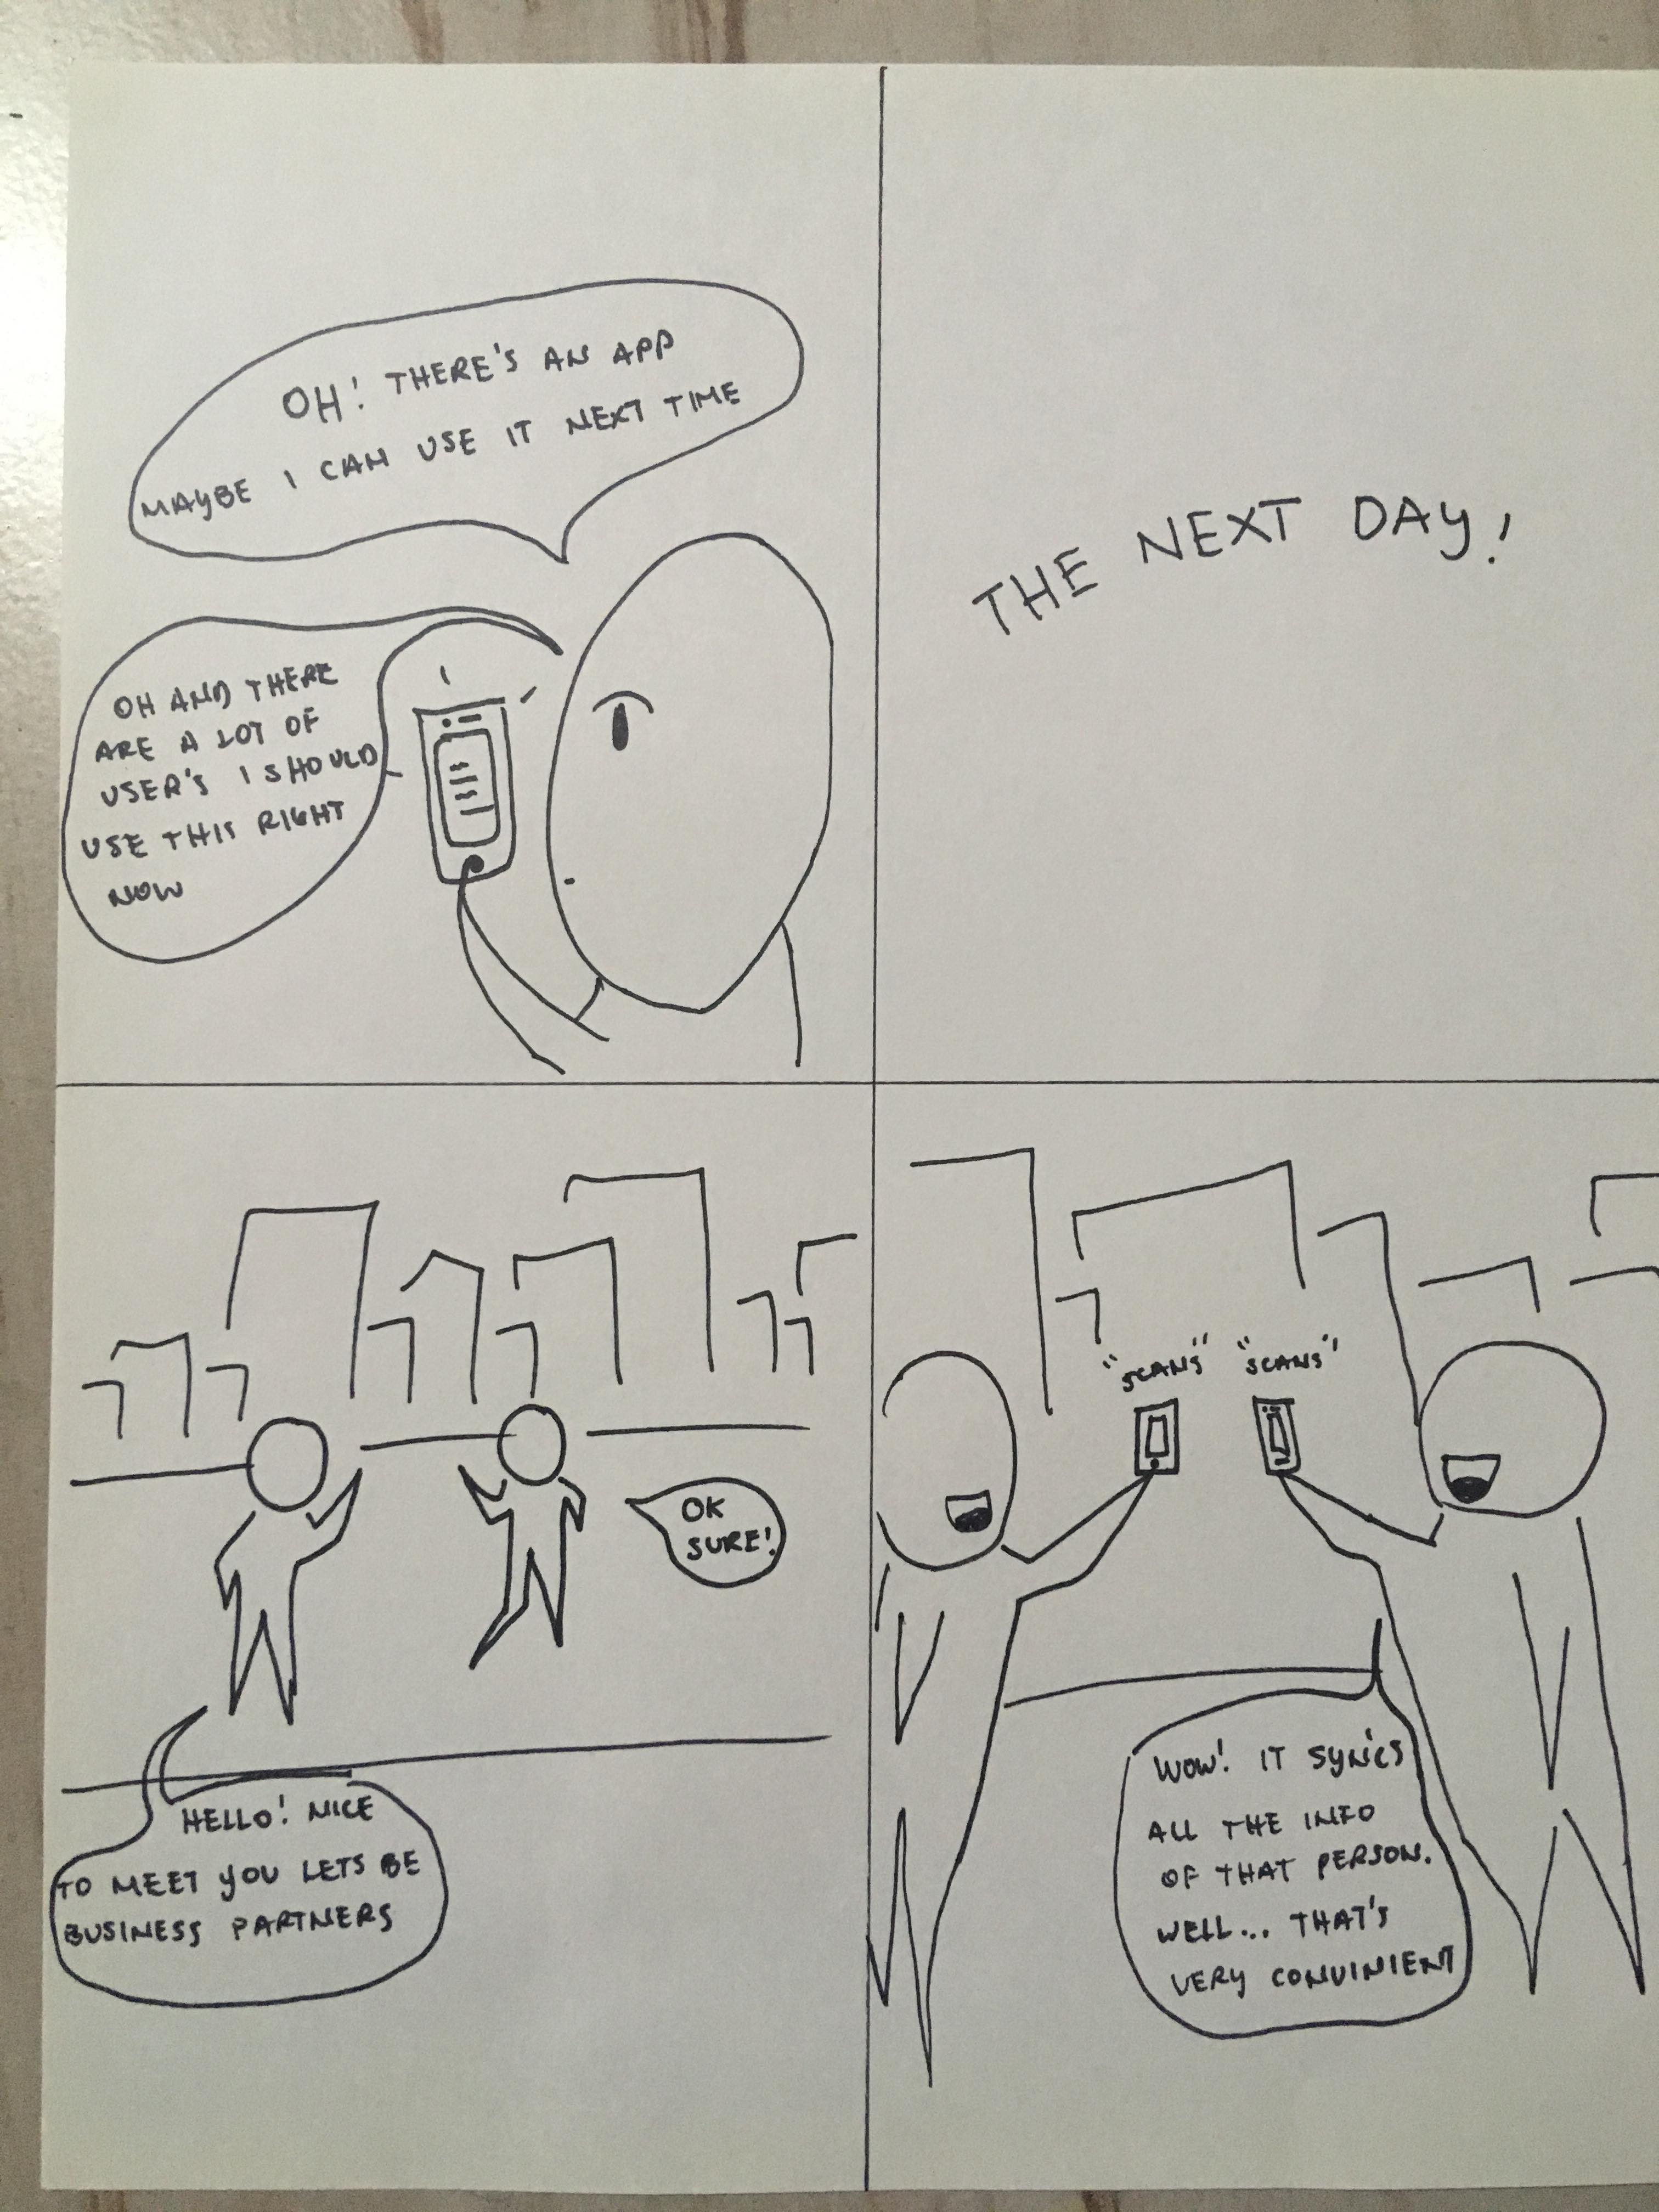 OH! THERE'S AN APP
MAYBE I CAN USE IT NEXT TIME
OH AND THERE
ARE A LOT OF
USER'S I SHOULD
USE THIS RIGHT
NOW
THE NEXT DAY!
OK
SURE!
HELLO! NICE
TO MEET YOU LETS BE
BUSINESS PARTNERS
"SCANS" "SCANS"
WOW! IT SYNCS
ALL THE INFO
OF THAT PERSON.
WELL... THAT'S
VERY CONVINIENT